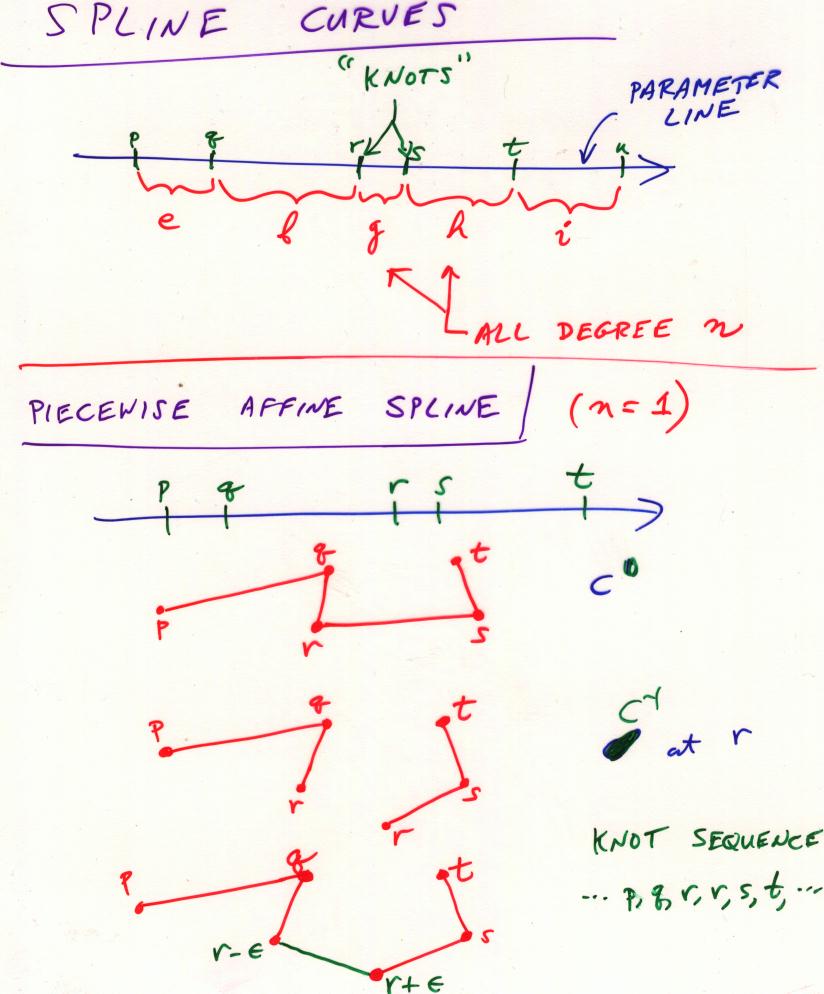 SPLINE CURVES
"KNOTS"
PARAMETER
LINE
p q r s t u
e f g h i
ALL DEGREE n
PIECEWISE AFFINE SPLINE (n = 1)
p q r s t
q t
C⁰
p r s
q t
p
at r
r s
r
KNOT SEQUENCE
... p, q, r, r, s, t, ...
p q t
r-ϵ s
r+ϵ